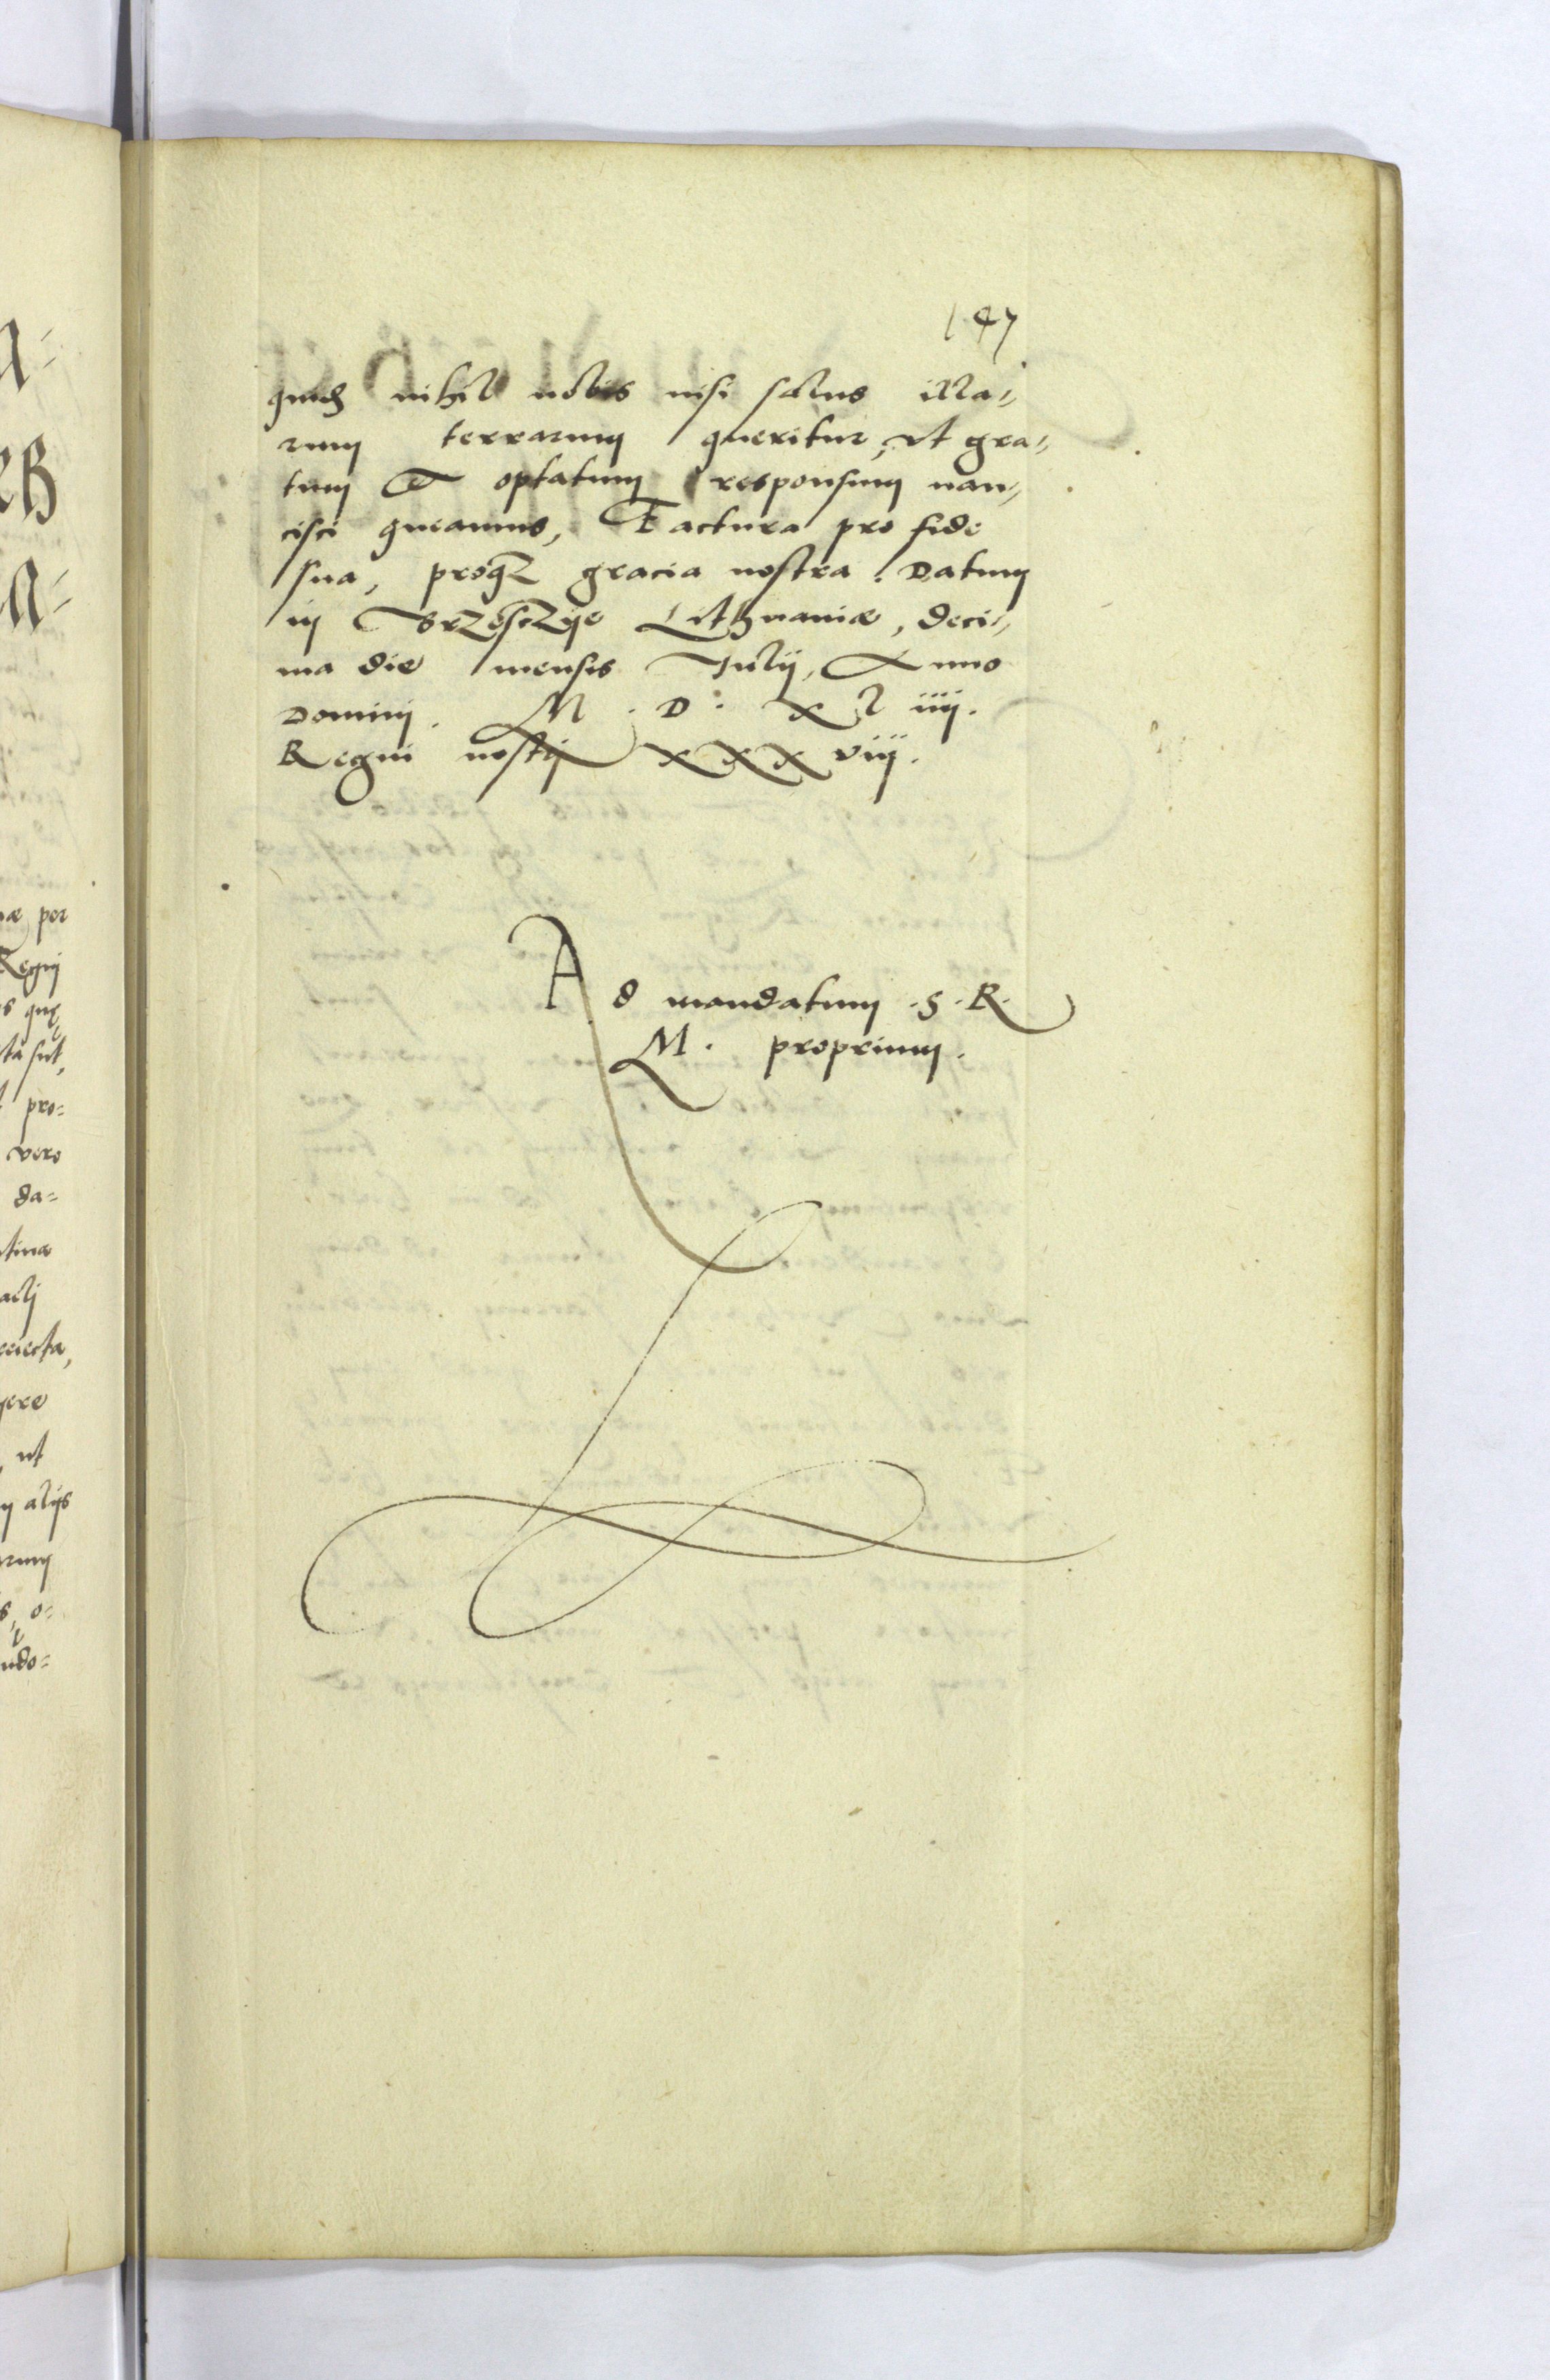 147
quod nihil nobis nisi salus illa=
rum terrarum queritur, vt gra=
tum & optatum responsum nan=
cisci queamus, Factura pro fide
sua, proq3 gracia nostra. Datum
in Brzesczije Lithuaniæ, deci=
ma die mensis Julij, Anno
Domini. M. D. xl iiij.
Regni nostri xxx viij.
Ad mandatum .S.R.
M. proprium.
æ per
Regni
s quę
ta sūt,
pro=
vero
da=
tina
acli
eiecta,
gere
, ut
alijs
arum
s, o=
ndo=